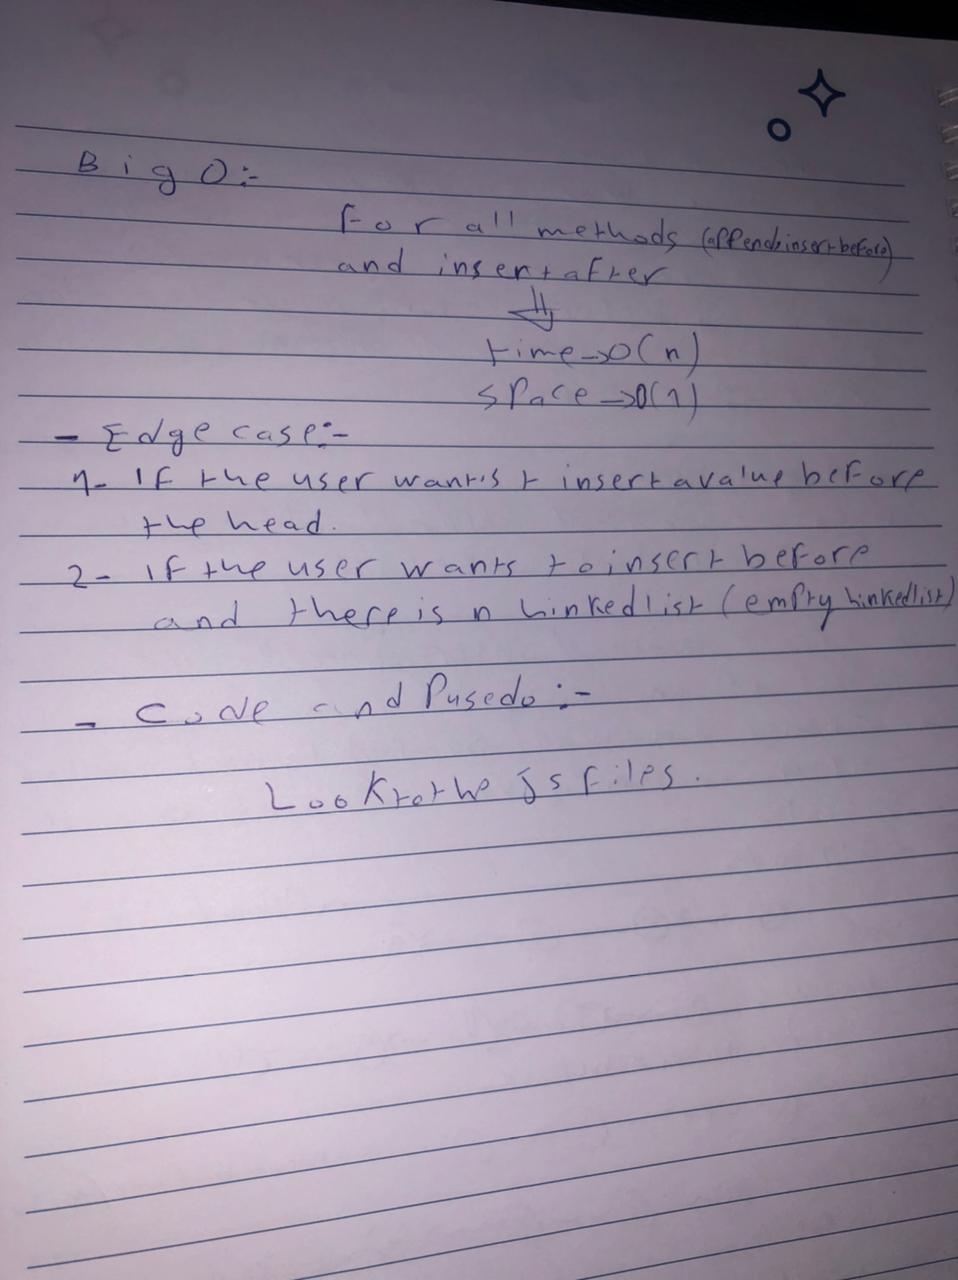 Big O:-
For all methods (append,insertbefore)
and insertafter
time->O(n)
space->O(1)
- Edge case:-
1- If the user want's t insert a value before
the head.
2- If the user wants to insert before
and there is n linkedlist (empty linkedlist)
- Code and Pusedo:-
Look to the Js files.